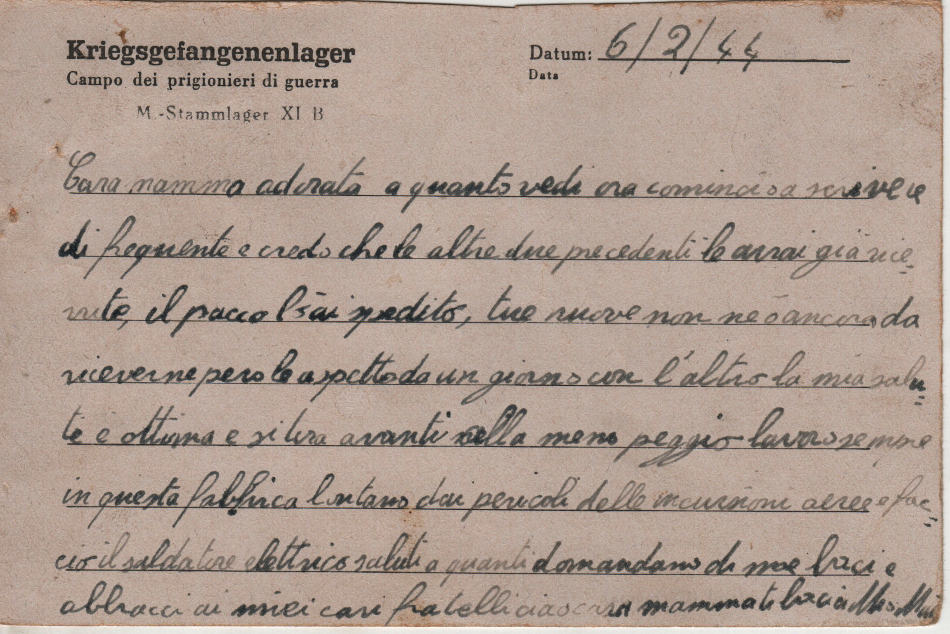 Kriegsgefangenenlager
Campo dei prigionieri di guerra
M.-Stammlager XI B
Datum: 6/2/44
Data
Cara mamma adorata a quanto vedi ora comincio a scrivere
di frequente e credo che le altre due precedenti le avrai già rice-
vute, il pacco l'ai spedito, tue nuove non ne ò ancora da
riceverne pero le aspetto da un giorno con l'altro la mia salu-
te e ottima e si tira avanti alla meno peggio lavoro sempre
in questa fabbrica lontano dai pericoli delle incursioni aeree e fac-
cio il saldatore elettrico saluti a quanti domandano di me baci e
abbracci ai miei cari fratelli ciao cara mamma ti bacia